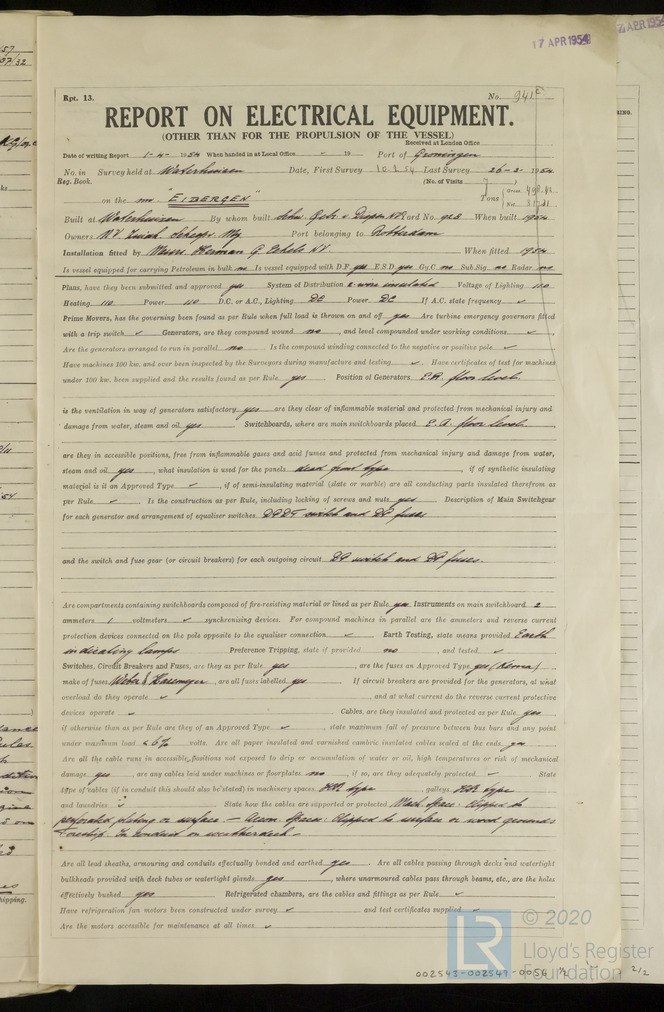 17 APR 1954
Rpt. 13.
No. 941
REPORT ON ELECTRICAL EQUIPMENT.
(OTHER THAN FOR THE PROPULSION OF THE VESSEL)
Received at London Office
Date of writing Report 1-4-1954 When handed in at Local Office 19 Port of Groningen
No. in Survey held at Waterhuizen Date, First Survey 10-2-54 Last Survey 26-3-1954
Reg. Book. (No. of Visits
on the mv. "EIDERGEN" Tons
Built at Waterhuizen By whom built Yard No. 928 When built 1954
Owners N.V. Port belonging to Rotterdam
Installation fitted by Messrs Herman G. Eekels NV When fitted 1954
Is vessel equipped for carrying Petroleum in bulk no Is vessel equipped with D.F. yes E.S.D. yes Gy.C. no Sub.Sig. no Radar. no
Plans, have they been submitted and approved yes System of Distribution 2-wire insulated Voltage of Lighting 110
Heating 110 Power 110 D.C. or A.C., Lighting DC Power DC If A.C. state frequency ✓
Prime Movers, has the governing been found as per Rule when full load is thrown on and off yes Are turbine emergency governors fitted
with a trip switch ✓ Generators, are they compound wound no, and level compounded under working conditions ✓
Are the generators arranged to run in parallel no Is the compound winding connected to the negative or positive pole ✓
Have machines 100 kw. and over been inspected by the Surveyors during manufacture and testing ✓ Have certificates of test for machines
under 100 kw. been supplied and the results found as per Rule yes Position of Generators E.R. floor level.
is the ventilation in way of generators satisfactory yes are they clear of inflammable material and protected from mechanical injury and
damage from water, steam and oil yes Switchboards, where are main switchboards placed E.R. floor level
are they in accessible positions, free from inflammable gases and acid fumes and protected from mechanical injury and damage from water,
steam and oil yes, what insulation is used for the panels dead front type, if of synthetic insulating
material is it an Approved Type ✓, if of semi-insulating material (slate or marble) are all conducting parts insulated therefrom as
per Rule ✓ Is the construction as per Rule, including locking of screws and nuts yes Description of Main Switchgear
for each generator and arrangement of equaliser switches DPDT switch and DP fuses
and the switch and fuse gear (or circuit breakers) for each outgoing circuit DP switch and DP fuses.
Are compartments containing switchboards composed of fire-resisting material or lined as per Rule yes Instruments on main switchboard 2
ammeters 1 voltmeters ✓ synchronizing devices. For compound machines in parallel are the ammeters and reverse current
protection devices connected on the pole opposite to the equaliser connection ✓ Earth Testing, state means provided Earth
indicating lamps Preference Tripping, state if provided no, and tested ✓
Switches, Circuit Breakers and Fuses, are they as per Rule yes, are the fuses an Approved Type yes (Kema)
make of fuses Weber & Hazemeyer, are all fuses labelled yes If circuit breakers are provided for the generators, at what
overload do they operate ✓, and at what current do the reverse current protective
devices operate ✓ Cables, are they insulated and protected as per Rule yes,
if otherwise than as per Rule are they of an Approved Type ✓, state maximum fall of pressure between bus bars and any point
under maximum load < 6% volts. Are all paper insulated and varnished cambric insulated cables sealed at the ends yes
Are all the cable runs in accessible positions not exposed to drip or accumulation of water or oil, high temperatures or risk of mechanical
damage yes, are any cables laid under machines or floorplates no, if so, are they adequately protected ✓ State
type of cables (if in conduit this should also be stated) in machinery spaces HR type, galleys HR type
and laundries State how the cables are supported or protected Mach. space: Clipped to
perforated plating or surface — Accom. spaces: Clipped to surface or wood grounds
In conduit on weatherdeck -
Are all lead sheaths, armouring and conduits effectually bonded and earthed yes. Are all cables passing through decks and watertight
bulkheads provided with deck tubes or watertight glands yes, where unarmoured cables pass through beams, etc., are the holes
effectively bushed yes Refrigerated chambers, are the cables and fittings as per Rule ✓
Have refrigeration fan motors been constructed under survey ✓ and test certificates supplied ✓
Are the motors accessible for maintenance at all times ✓
LR © 2020
Lloyd's Register
Foundation
002543-002549-0056 1/2